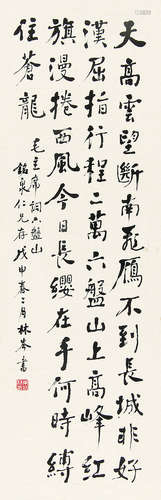 天高雲望斷南飛鴈不到長城非好
漢屈指行程二萬六盤山上高峰紅
旗漫捲西風今日長纓在手何時縛
住蒼龍
毛主席詞六盤山
銘泉仁兄存戊申春二月林岑書